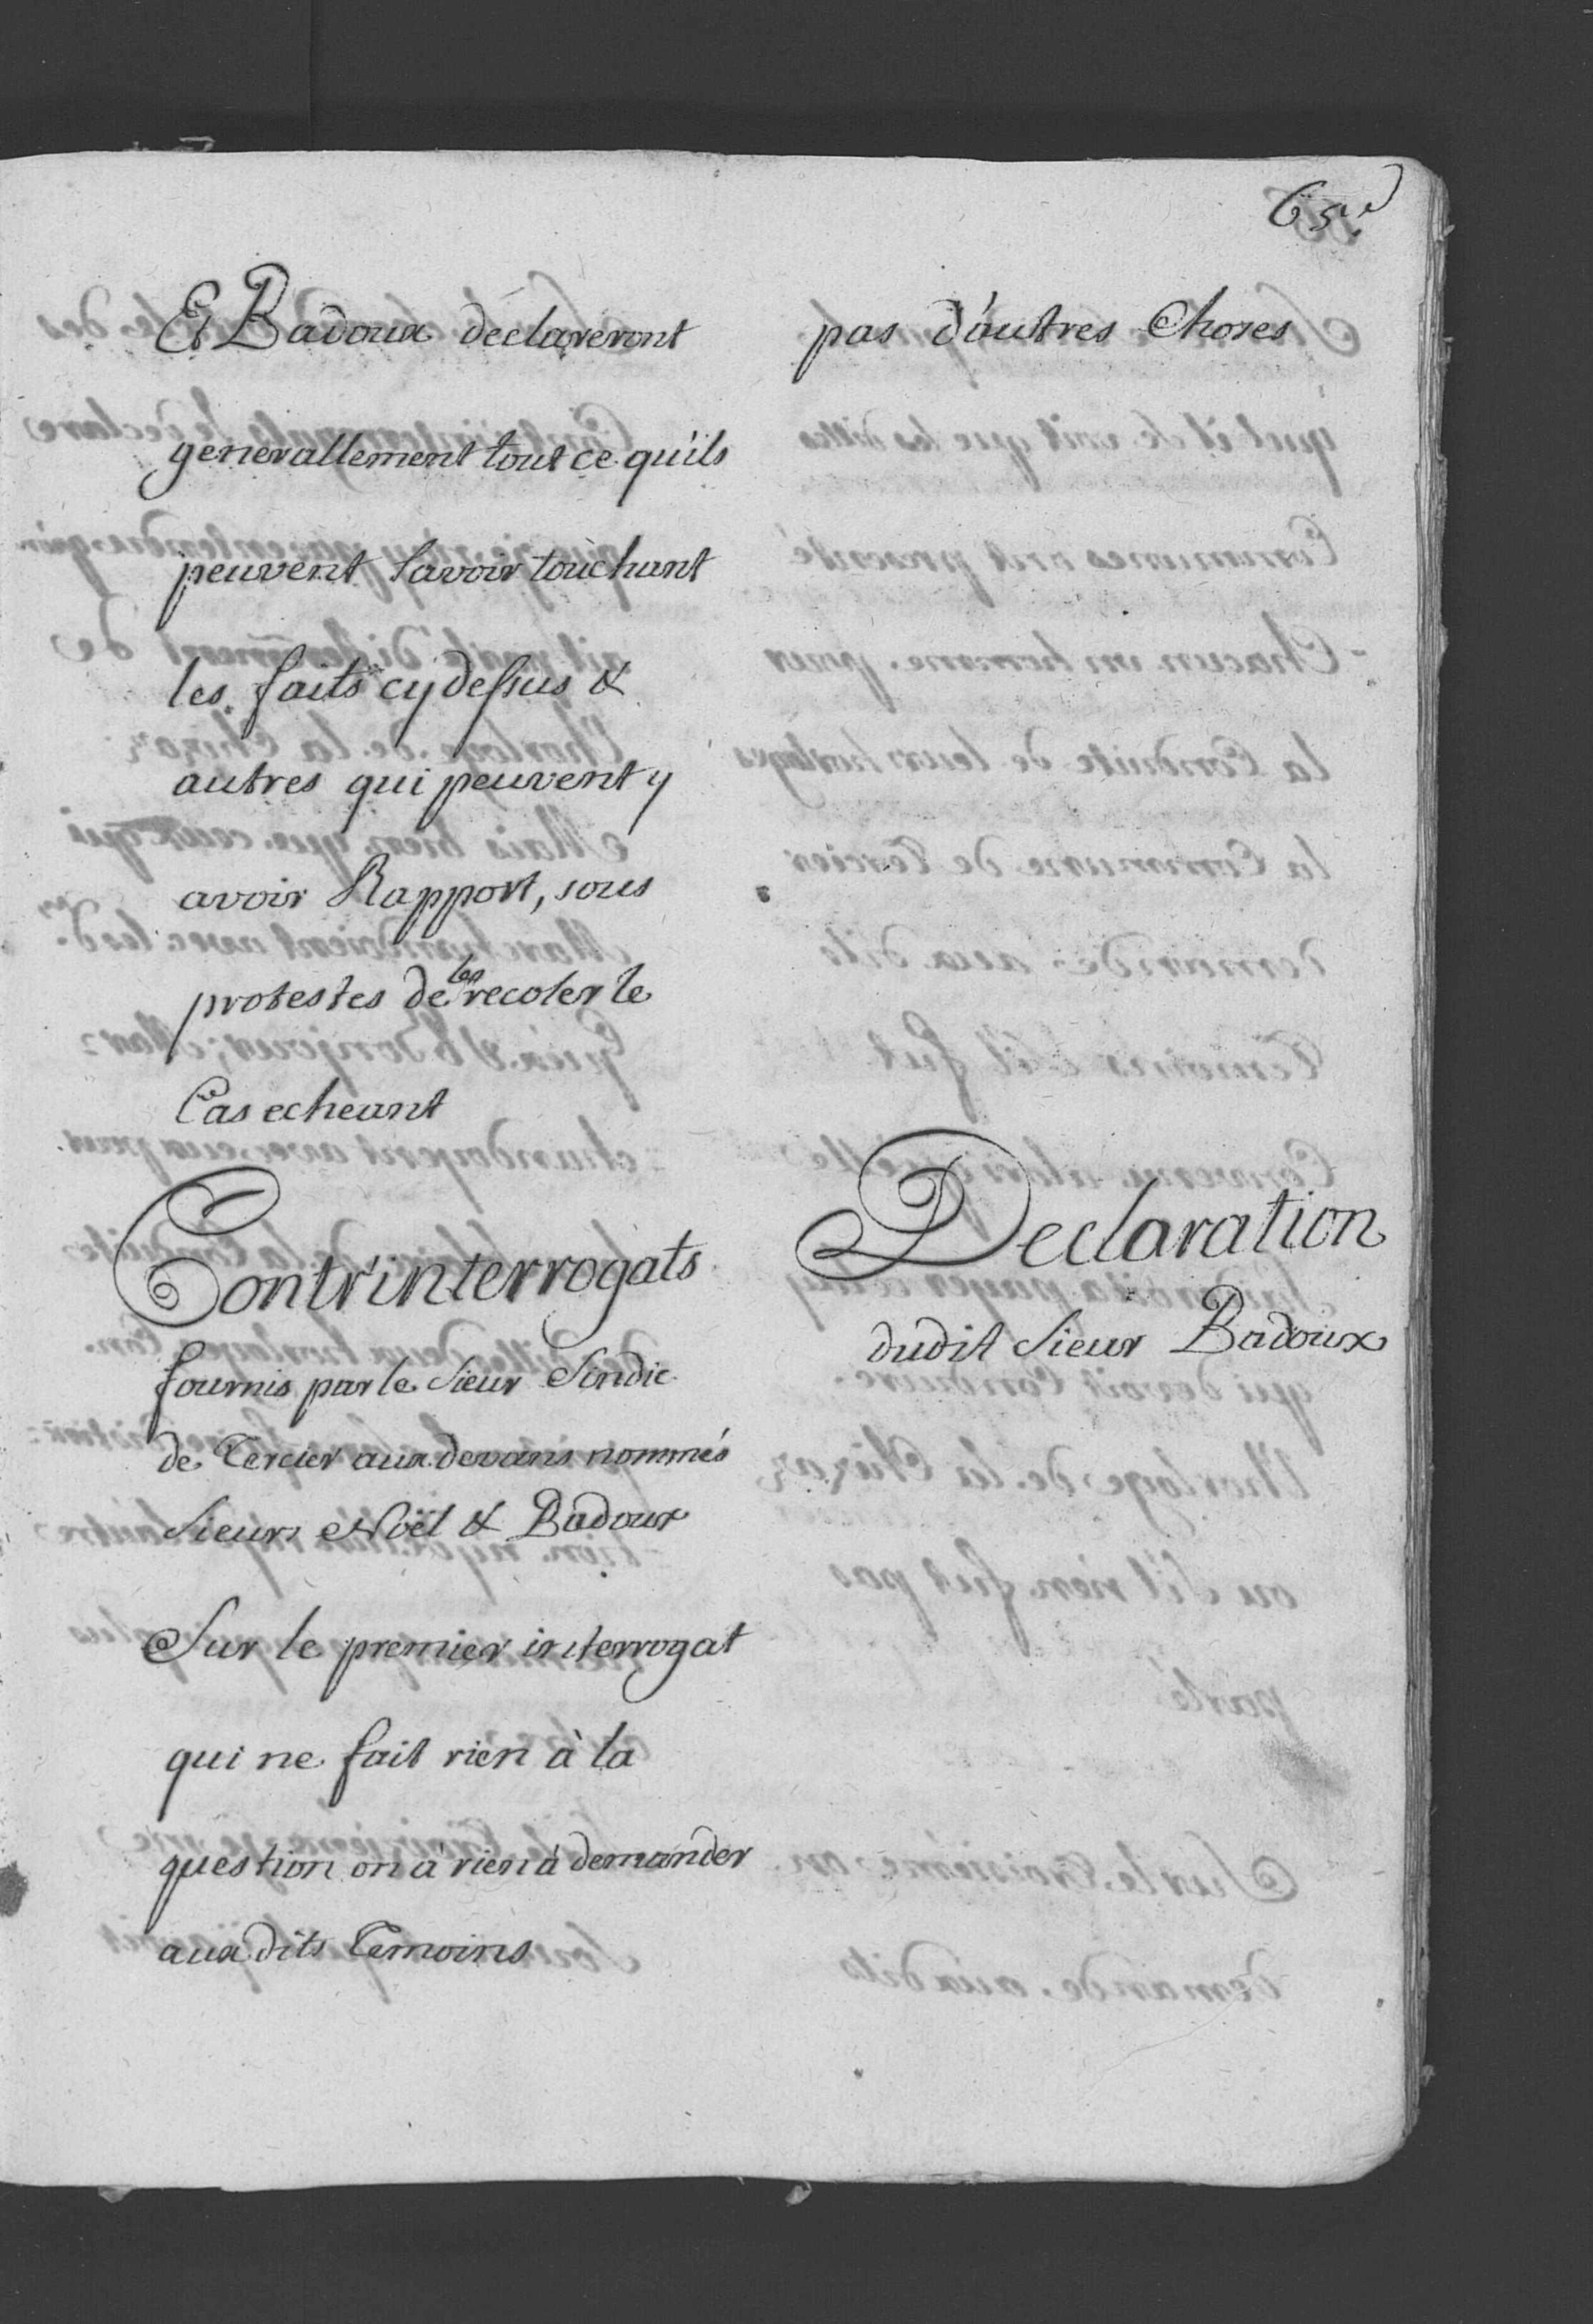 65.e
Et Badoux declareront
generallement tout ce qu'ils
peuvent savoir touchant
les faits cy dessus &
autres qui peuvent y
avoir Rapport, sous
protestes de les recoler le
Cas echeant
Contr'interrogats
fournis par le Sieur Sindic
de Cercier aux devans nommés
Sieurs Noël & Badoux
Sur le premier interrogat
qui ne fait rien à la
question on à rien à demander
aux dits Temoins
pas d'autres Choses
Declaration
dudit Sieur Badoux